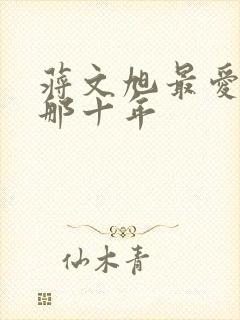 蒋文旭最爱
那十年
仙木青